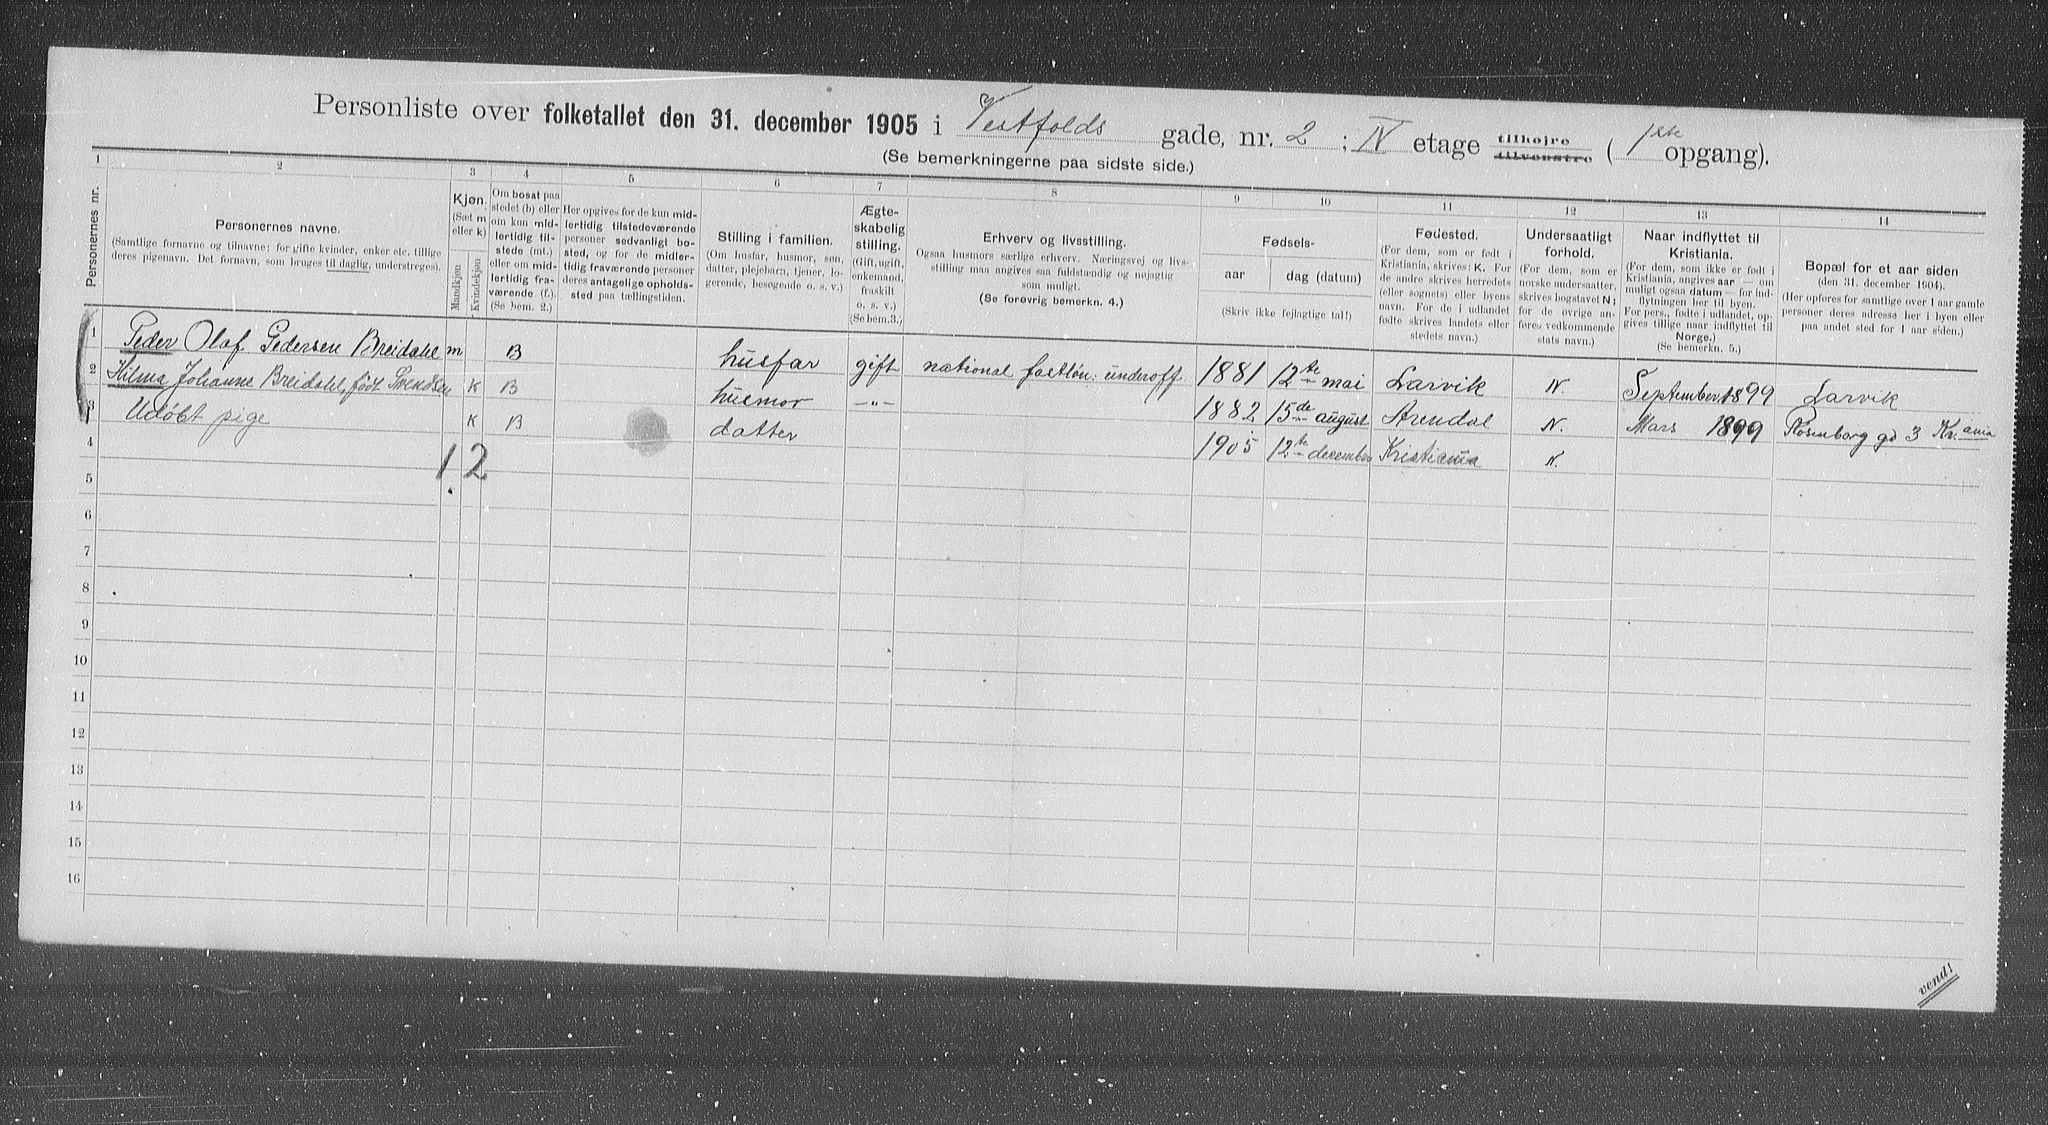 Personliste over folketallet den 31. december 1905 i Vestfolds gade, nr. 2 ; IV etage tilhøjre tilvenstre ( 1ste opgang).
(Se bemerkningerne paa sidste side.)
1 2 3 4 5 6 7 8 9 10 11 12 13 14
Personernes nr.
Personernes navne.
(Samtlige fornavne og tilnavne; for gifte kvinder, enker etc. tillige
deres pigenavn. Det fornavn, som bruges til daglig, understreges).
Kjøn.
(Sæt m
eller k)
Mandkjøn
Kvindekjøn
Om bosat paa
stedet (b) eller
om kun mid-
lertidig til-
stede (mt.)
eller om mid-
lertidig fra-
værende (f.).
(Se bem. 2.)
Her opgives for de kun mid-
lertidig tilstedeværende
personer sedvanligt bo-
sted, og for de midler-
tidig fraværende personer
deres antagelige opholds-
sted paa tællingstiden.
Stilling i familien.
(Om husfar, husmor, søn,
datter, plejebarn, tjener, lo-
gerende, besøgende o. s. v.)
Ægte-
skabelig
stilling.
(Gift, ugift,
enkemand,
fraskilt
o. s. v.)
(Se bem.3.)
Erhverv og livsstilling.
Ogsaa husmors særlige erhverv. Næringsvej og livs-
stilling maa angives saa fuldstændig og nøjagtig
som muligt.
(Se forøvrig bemerkn. 4.)
Fødsels-
aar
dag (datum)
(Skriv ikke fejlagtige tal!)
Fødested.
(For dem, som er født i
Kristiania, skrives: K. For
de andre skrives herredets
(eller sognets) eller byens
navn. For de i udlandet
fødte skrives landets eller
stedets navn.)
Undersaatligt
forhold.
(For dem, som er
norske undersaatter,
skrives bogstavet N;
for de øvrige an-
føres vedkommende
stats navn.)
Naar indflyttet til
Kristiania.
(For dem, som ikke er født i
Kristiania, angives aar — om
muligt ogsaa datum — for ind-
flytningen her til byen.
For pers., fødte i udlandet, op-
gives tillige naar indflyttet til
Norge.)
(Se bemerkn. 5.)
Bopæl for et aar siden
(den 31. december 1904).
(Her opføres for samtlige over 1 aar gamle
personer deres adresse her i byen eller
paa andet sted for 1 aar siden.)
1 Peder Olaf Pedersen Breidahl m B husfar gift national fastløn. underoff. 1881 12te mai Larvik N. September 1899 Larvik
2 Hilma Johanne Breidahl, født Svendsen K B husmor —"— 1882 15de august Arendal N. Mars 1899 Rosenborg gd 3 Kr.ania
3 Udøbt pige K B datter 1905 12te december Kristiania N.
4
1. 2
5
6
7
8
9
10
11
12
13
14
15
16
vend!